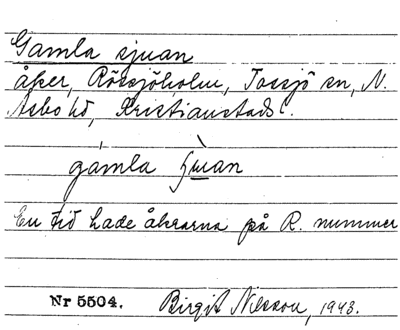 Gamla sjuan
åker, Rössjöholm, Tossjö sn, N.
Åsbo hd, Kristianstads l.
gámla ʃɥ̀an
En tid hade åkrarna på R. nummer
Nr 5504. Birgit Nilsson, 1943.